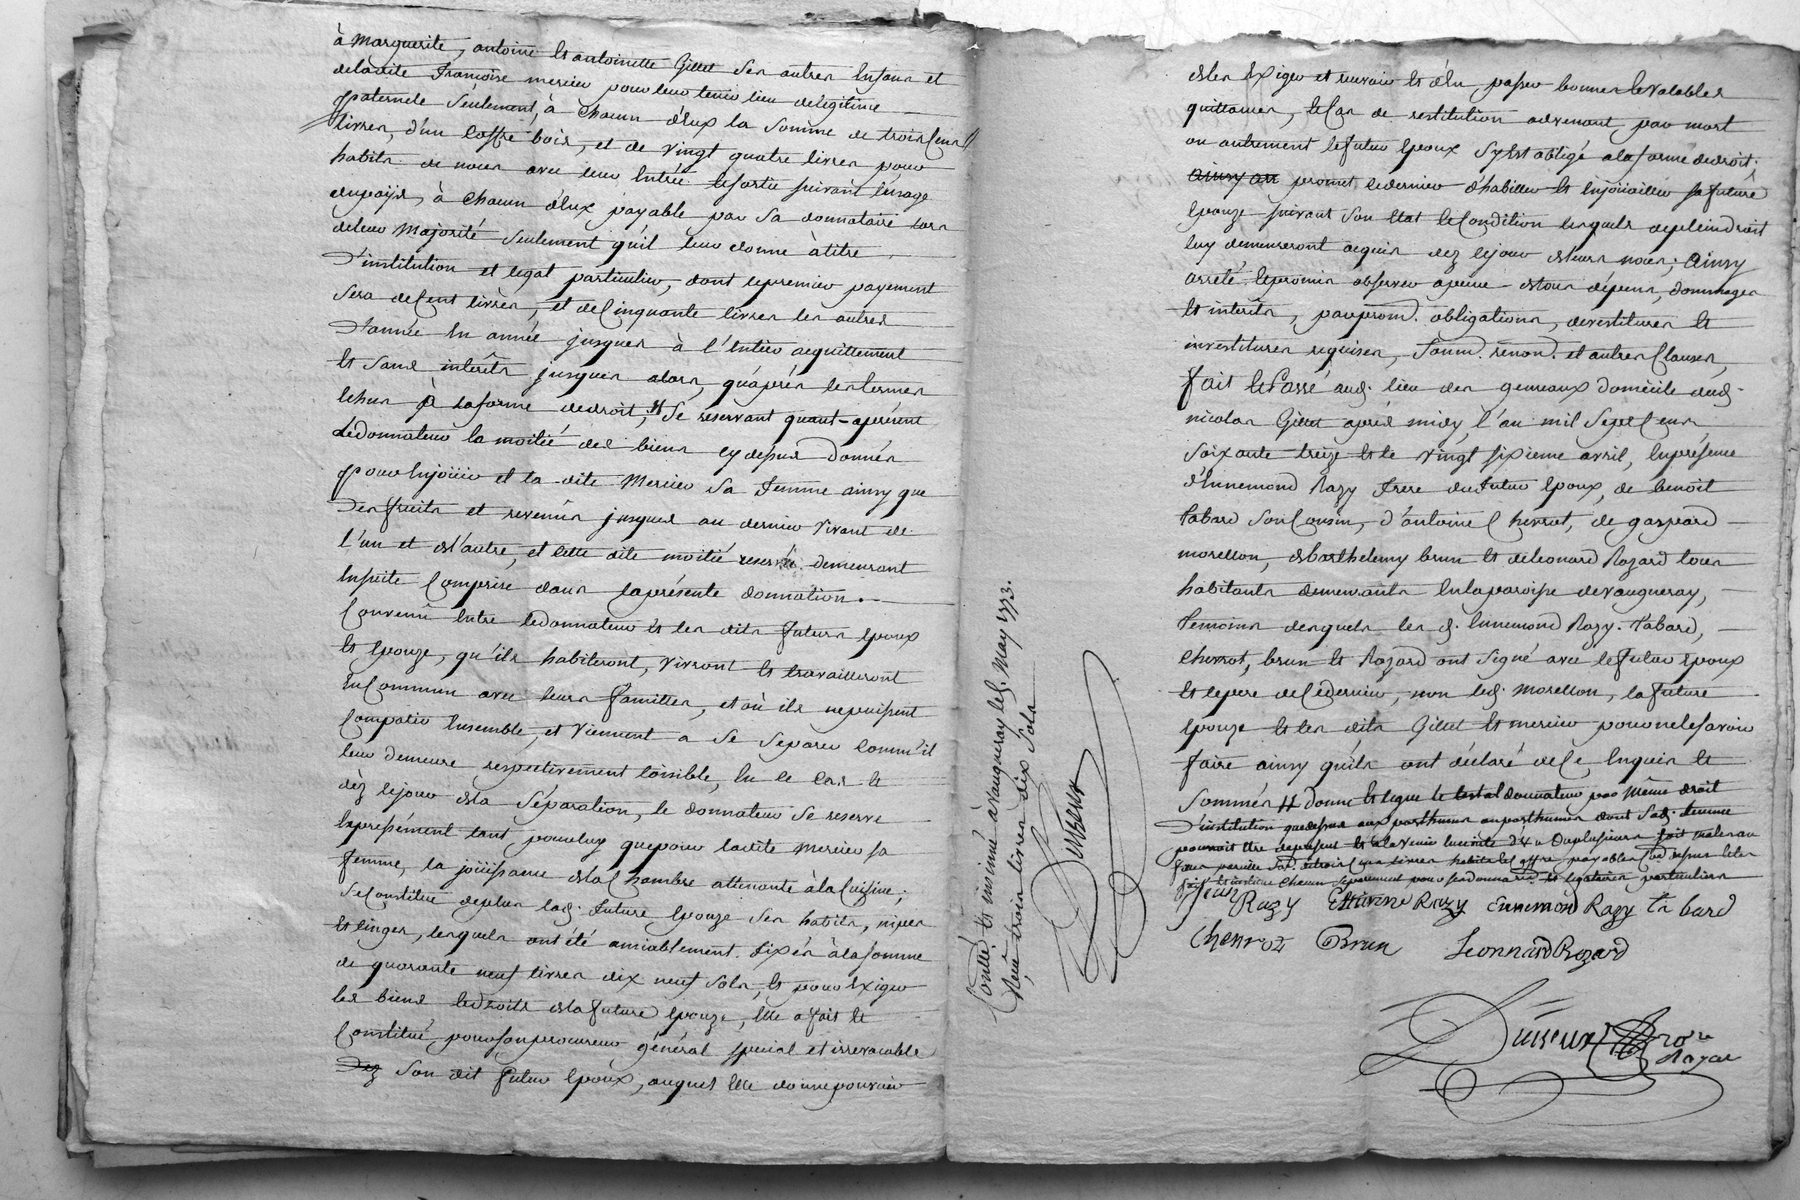 à Marguerite, antoine et antoinette Gillet ses autres enfans et
deladite Francoise mercier pour leur tenir lieu delegitime
paternele séulement, à chacun d'eux la somme de trois cens
livres, d'un coffre bois, et de vingt quatre livres pour
habits de noces avec leur entrée et sortie suivant l'usage
dupaÿs, à chacun d'eux payable par sa donnataire lors
deleur Majorité seulement qu'il leur donne à titre
D'institution et legat particulier, dont lepremier payement
sera decent livres, et decinquante livres les autres
d'année en année jusques à l'entier acquittement
et sans intérêts jusques alors, qu'après les termes
échus à laforme dedroit, # se reservant quant-aprésent
Ledonnateur la moitié des biens cy dessus donnés
pour enjoüir et la dite Mercier sa femme ainsy que
des fruits et revenus jusques au dernier vivant de
l'un et del'autre, et cette dite moitié reservée demeurant
ensuite comprise dans laprésente donnation.
Convenû entre ledonnateur et les dits futurs epoux
et epouze, qu'ils habiteront, vivront et travailleront
en commun avec leurs familles, et où ils nepuissent
compatir ensemble, et viennent a se separer comm'il
leur demeure respectivement loisible, en ce cas et
dèz lejour dela séparation, le donnateur se reserve
expressément tant pourluy quepour ladite Mercier sa
femme, la joüissance dela chambre attenante à la cuisine;
se constitue deplus lad. future epouze ses habits, nipes
et linges, lesquels ont été amiablement fixés à la somme
de quarante neuf livres dix neuf sols, et pour exiger
les biens et droits dela future epouze, elle a fait et
constitué pour son procureur général special et irrevocable
Dez son dit futur epoux, auquel elle donne pouvoir
Contlé et insinué à vaugneray le 8. May 1773.
Reçu trois livres dix sols
Dusseux
deles exiger et recevoir et d'en passer bonnes et valables
quittances, et cas de restitution advenant par mort
ou autrement le futur epoux s'y est obligé a la forme dedroit.
ainsy ar promet ledernier d'habiller et enjoüailler sa future
epouze suivant son etat et condition lesquels depleindroit
luy demeureront acquis dez lejour deleurs noces; Ainsy
arreté et promis observer apeine detous dépens, dommages
et intérêts, par prom. obligations, devestitures et
investitures requises, soum. renon. et autres clauses,
fait et Passé aud. lieu des gemeaux domicile dud.
nicolas Gillet après midy l'an mil sept cens
soixante treize et le vingt sixieme avril, en présence
d'Ennemond Razy frere du futur epoux, de benoît
tabard son cousin, d'antoine Chenrot, de gaspard
morellon, debarthelemy brun et deleonard Rozard tous
habitants demeurants en la paroisse devaugneray,
temoins desquels les d. Ennemond Razy. tabard,
chenrot, brun et Rozard ont signé avec le futur epoux
et le pere de ce dernier, non led. morellon, la future
epouze et les dits Gillet et mercier pour ne le savoir
faire ainsy qu'ils ont déclaré de ce enquis et
sommés # donne et legue led. donnateur par même droit
d'institution quedessus aux posthumes ou posthumes dont sad. femme
pourroit etre
jean Razy Ettienne Razy Ennemond Razy ta bard
Chenrot Brun Leonnard Rozard
Dusseux